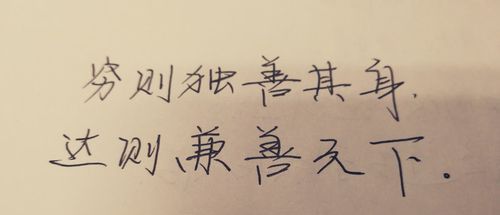 穷则独善其身.
达则兼善天下.